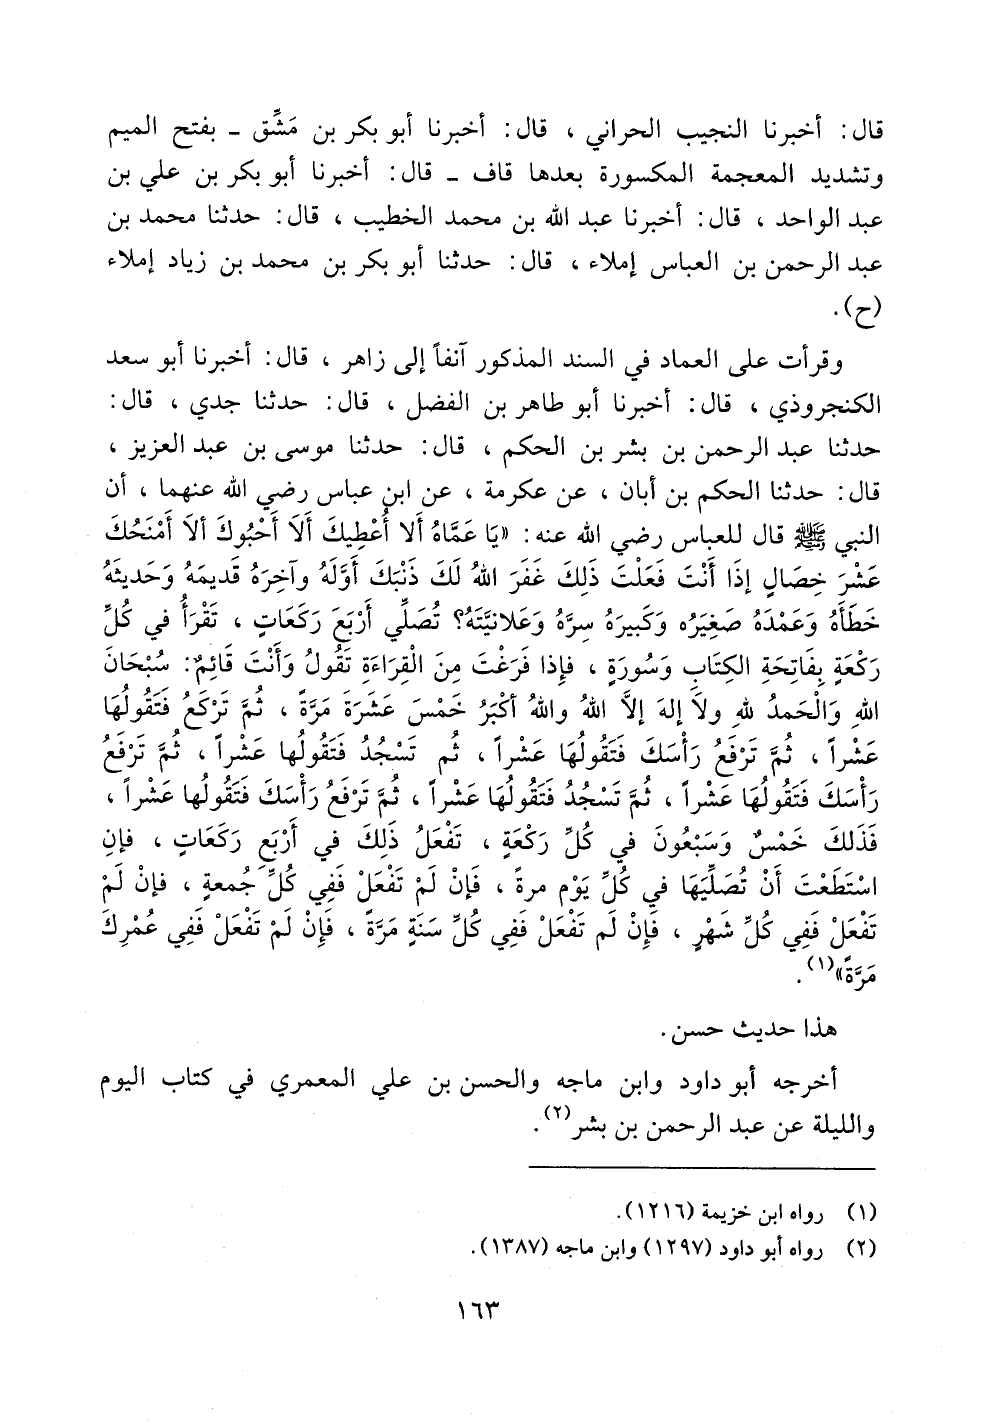 قال: أخبرنا النجيب الحراني ، قال: أخبرنا أبو بكر بن مَشِّق ـ بفتح الميم
وتشديد المعجمة المكسورة بعدها قاف ـ قال: أخبرنا أبو بكر بن علي بن
عبد الواحد ، قال: أخبرنا عبد الله بن محمد الخطيب ، قال: حدثنا محمد بن
عبد الرحمن بن العباس إملاء ، قال: حدثنا أبو بكر بن محمد بن زياد إملاء
(ح).
وقرأت على العماد في السند المذكور آنفاً إلى زاهر ، قال: أخبرنا أبو سعد
الكنجروذي ، قال: أخبرنا أبو طاهر بن الفضل ، قال: حدثنا جدي ، قال:
حدثنا عبد الرحمن بن بشر بن الحكم ، قال: حدثنا موسى بن عبد العزيز ،
قال: حدثنا الحكم بن أبان ، عن عكرمة ، عن ابن عباس رضي الله عنهما ، أن
النبي ﷺ قال للعباس رضي الله عنه: «يَا عَمَّاهُ ألا أُعْطِيكَ أَلَا أَحْبُوكَ ألاَ أَمْنَحُكَ
عَشْرَ خِصَالٍ إذَا أَنْتَ فَعَلْتَ ذَلِكَ غَفَرَ اللهُ لَكَ ذَنْبَكَ أَوَّلَهُ وآخِرَهُ قَديمَهُ وَحَديثَهُ
خَطَأَهُ وَعَمْدَهُ صَغِيرَه وَكَبيرَهُ سِرَّهُ وَعَلانيَّتَهُ؟ تُصَلِّي أَرْبَعَ رَكَعَاتٍ ، تَقْرَأُ في كُلِّ
رَكْعَةٍ بِفَاتِحَةِ الكِتَابِ وَسُورَةٍ ، فإِذا فَرَغْتَ مِنَ الْقِرَاءَةِ تَقُولُ وَأَنْتَ قَائِمٌ: سُبْحَانَ
اللهِ وَالْحَمدُ للهِ ولاَ إلهَ إلاَّ اللهُ واللهُ أكْبَرُ خَمْسَ عَشْرَةَ مَرَّةً ، ثُمَّ تَرْكَعُ فَتَقُولُهَا
عَشْراً ، ثُمَّ تَرْفَعُ رَأْسَكَ فَتَقُولُهَا عَشْراً ، ثُم تَسْجُدُ فَتَقُولُها عَشْراً ، ثُمَّ تَرْفَعُ
رَأسَكَ فَتَقُولُهَا عَشْراً ، ثُمَّ تَسْجُدُ فَتَقُولُهَا عَشْراً ، ثُمَّ تَرْفَعُ رَأْسَكَ فَتَقُولُها عَشْراً ،
فَذَلكَ خَمْسٌ وَسَبْعُونَ في كُلِّ رَكْعَةٍ ، تَفْعَلُ ذَلِكَ في أَرْبَعِ رَكَعَاتٍ ، فإنِ
اسْتَطَعْتَ أَنْ تُصَلِّيَهَا في كُلِّ يَوْم مرةً ، فَإنْ لَمْ تَفْعَلْ فَفِي كُلِّ جُمعةٍ ، فإنْ لَمْ
تَفْعَلْ فَفِي كُلِّ شَهْرٍ ، فَإنْ لَم تَفْعَلْ فَفِي كُلِّ سَنَةٍ مَرَّةً ، فَإِنْ لَمْ تَفْعَلْ فَفِي عُمْرِكَ
مَرَّةً»(١).
هذا حديث حسن.
أخرجه أبو داود وابن ماجه والحسن بن علي المعمري في كتاب اليوم
والليلة عن عبد الرحمن بن بشر(٢).
(١) رواه ابن خزيمة (١٢١٦).
(٢) رواه أبو داود (١٢٩٧) وابن ماجه (١٣٨٧).
١٦٣